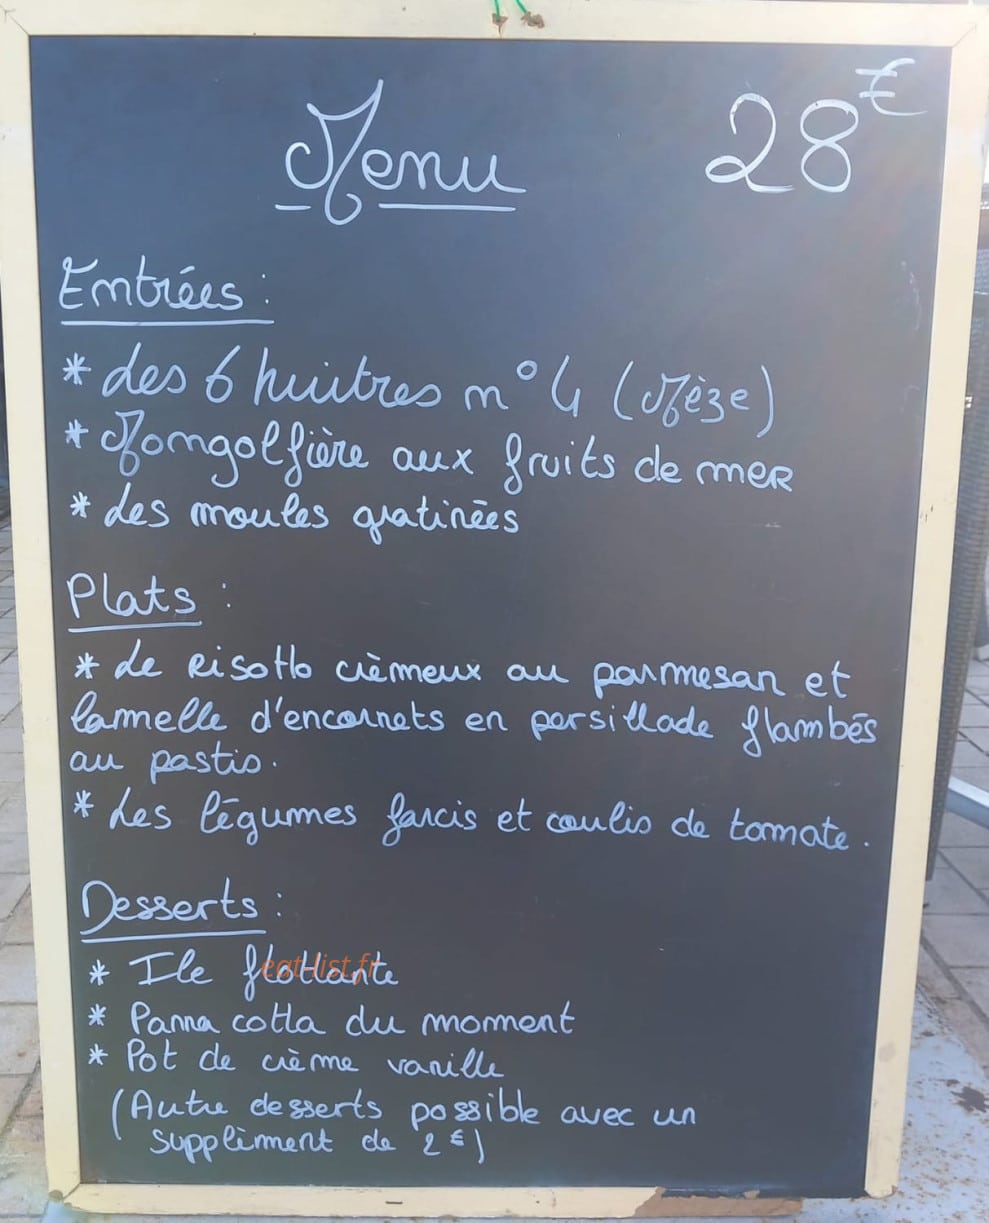 Menu 28€
Entrées :
* Les 6 huîtres n°4 (Mèze)
* Mongolfière aux fruits de mer
* Les moules gratinées
Plats :
* Le risotto crèmeux au parmesan et
lamelle d'encornets en persillade flambés
au pastis.
* Les légumes farcis et coulis de tomate.
Desserts :
* Ile flottante
eat-list.fr
* Panna cotta du moment
* Pot de crème vanille
(Autre desserts possible avec un
supplèment de 2€)